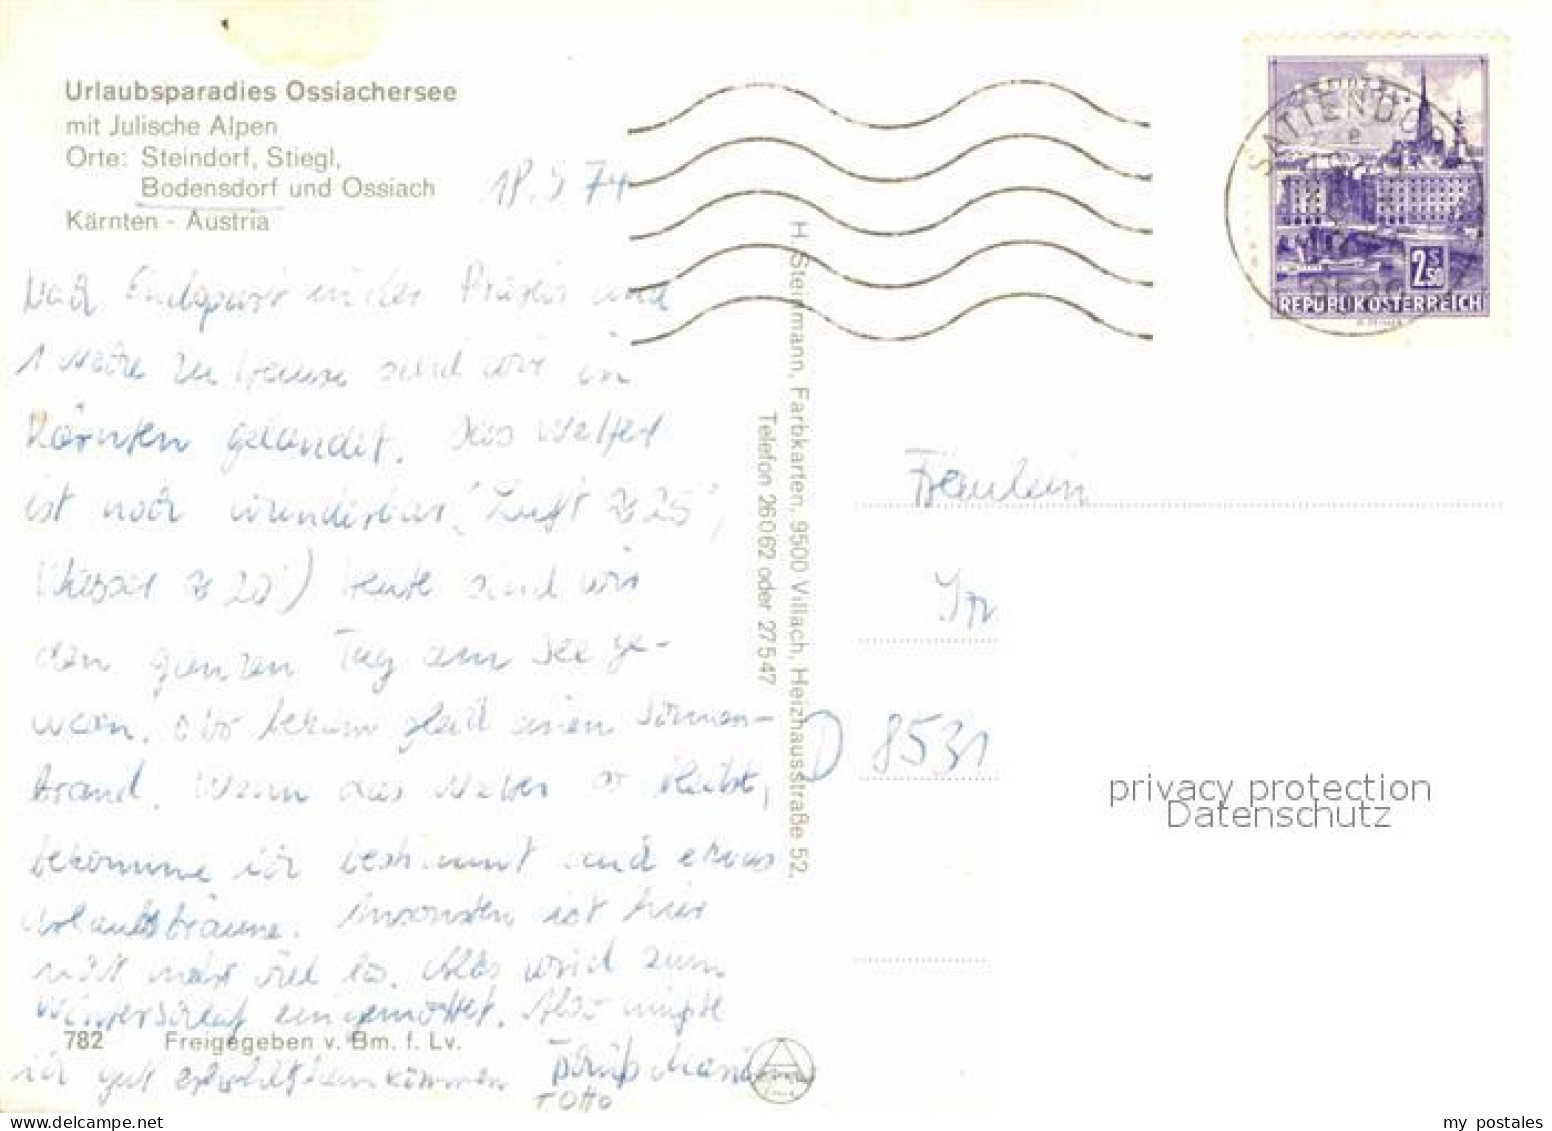 Urlaubsparadies Ossiachersee
mit Julische Alpen
Orte: Steindorf, Stiegl,
Bodensdorf und Ossiach
Kärnten - Austria
18.9 74
Nach Endspurt in der Praxis und
1 Woche zu Hause sind wir in
Kärnten gelandet. Das Wetter
ist noch wunderbar (Luft 25°,
Wasser 20°) heute sind wir
den ganzen Tag am See ge-
wesen. bekam gleich einen Sonnen-
brand. Wenn das Wetter so bleibt,
bekomme ich bestimmt auch etwas
Urlaubsbräune. Ansonsten ist hier
nicht mehr viel los. Alles wird zum
Winterschlaf eingemottet. Also müßte
ich gut erholt heimkommen
Gruß
+ Otto
782 Freigegeben v. Bm. f. Lv.
H. Steinmann, Farbkarten, 9500 Villach, Heizhausstraße 52,
Telefon 26062 oder 27547
SATTENDORF
e
2 S 50
REPUBLIK ÖSTERREICH
Fräulein
D 8531
privacy protection
Datenschutz
my postales